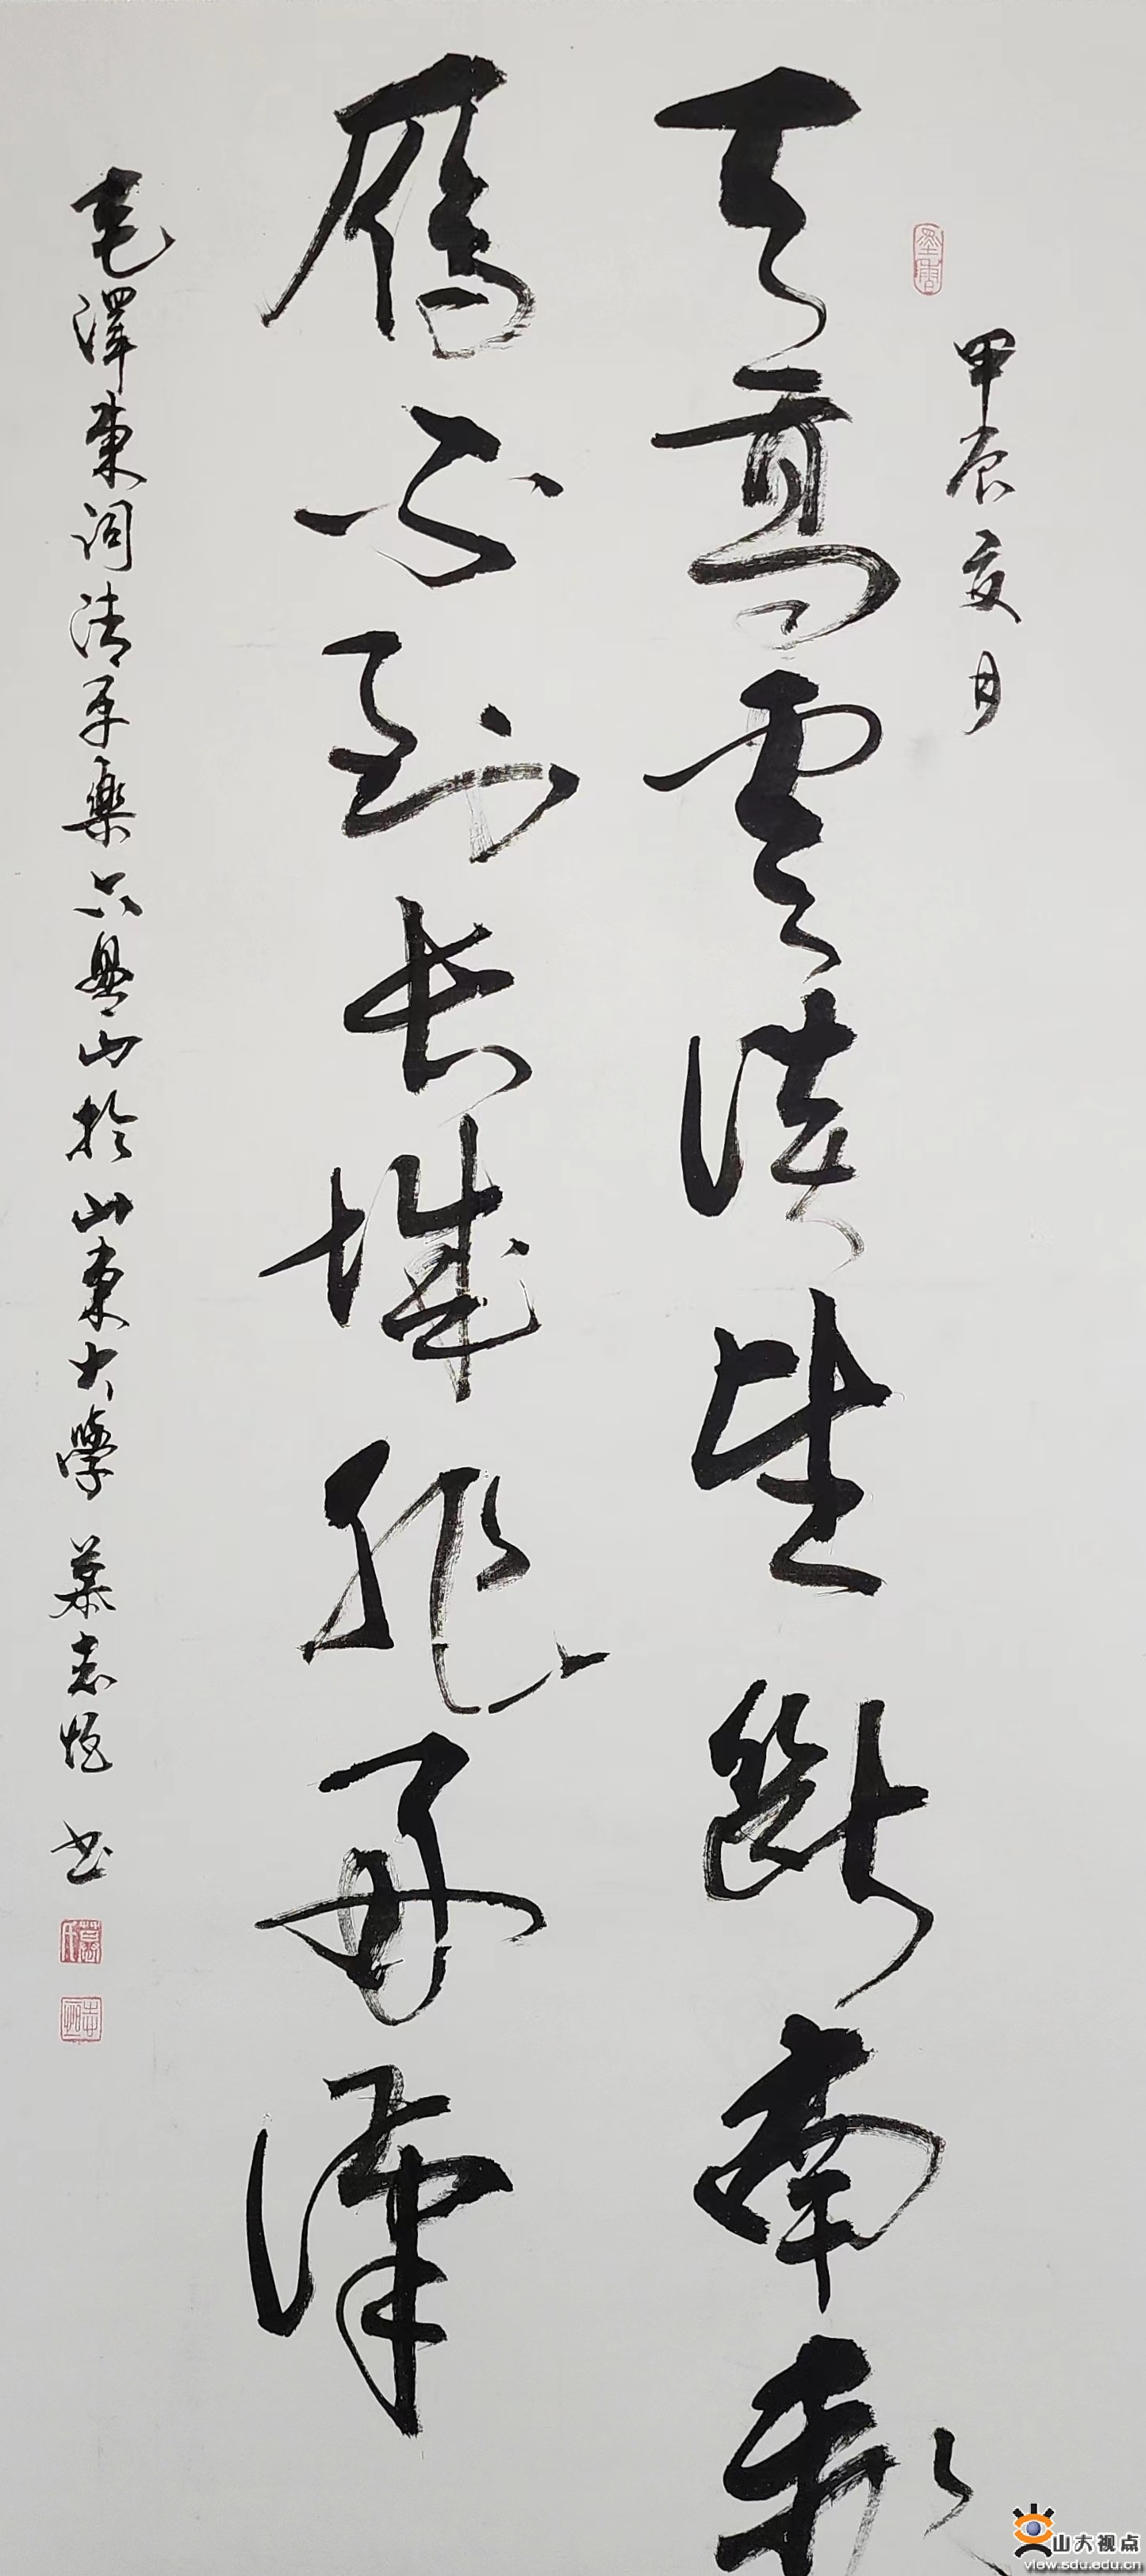 甲辰夏月
天高雲淡望斷南飛
雁不到長城非好漢
毛澤東詞清平樂六盤山於山東大學 慕志恒 書
慕氏
志恒
山大视点
view.sdu.edu.cn